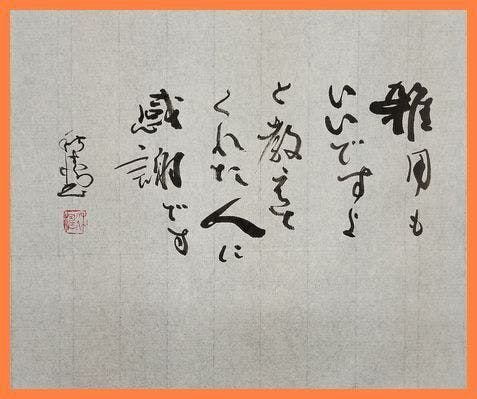 雑用も
いいですよ
と教えて
くれた人に
感謝です